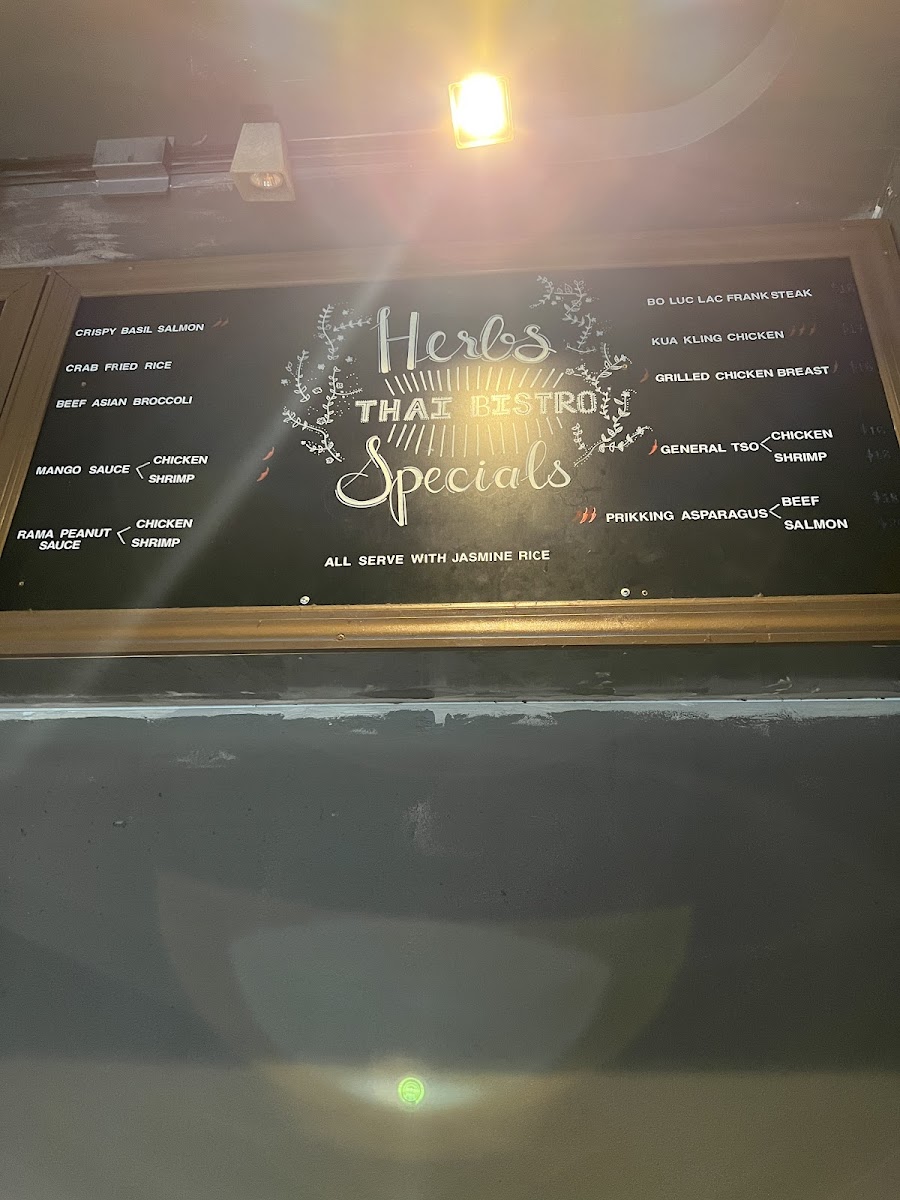 Herbs
THAI BISTRO
Specials
CRISPY BASIL SALMON
CRAB FRIED RICE
BEEF ASIAN BROCCOLI
MANGO SAUCE
CHICKEN
SHRIMP
RAMA PEANUT
SAUCE
CHICKEN
SHRIMP
ALL SERVE WITH JASMINE RICE
BO LUC LAC FRANK STEAK
KUA KLING CHICKEN
GRILLED CHICKEN BREAST
GENERAL TSO
CHICKEN
SHRIMP
PRIKKING ASPARAGUS
BEEF
SALMON